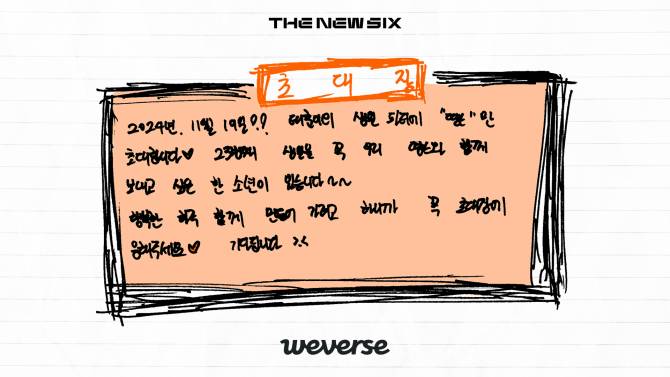 THE NEW SIX
초 대 장
2024년, 11월 19일?? 태훈이의 생일 파티에 "떤드"만
초대합니다♡ 23번째 생일을 꼭 우리 떤드와 함께
보내고 싶은 한 소년이 있습니다~~
행복한 하루 함께 만들어 가려고 하니까 꼭 초대장에
응해주세요♡ 기다립니다 >.<
weverse